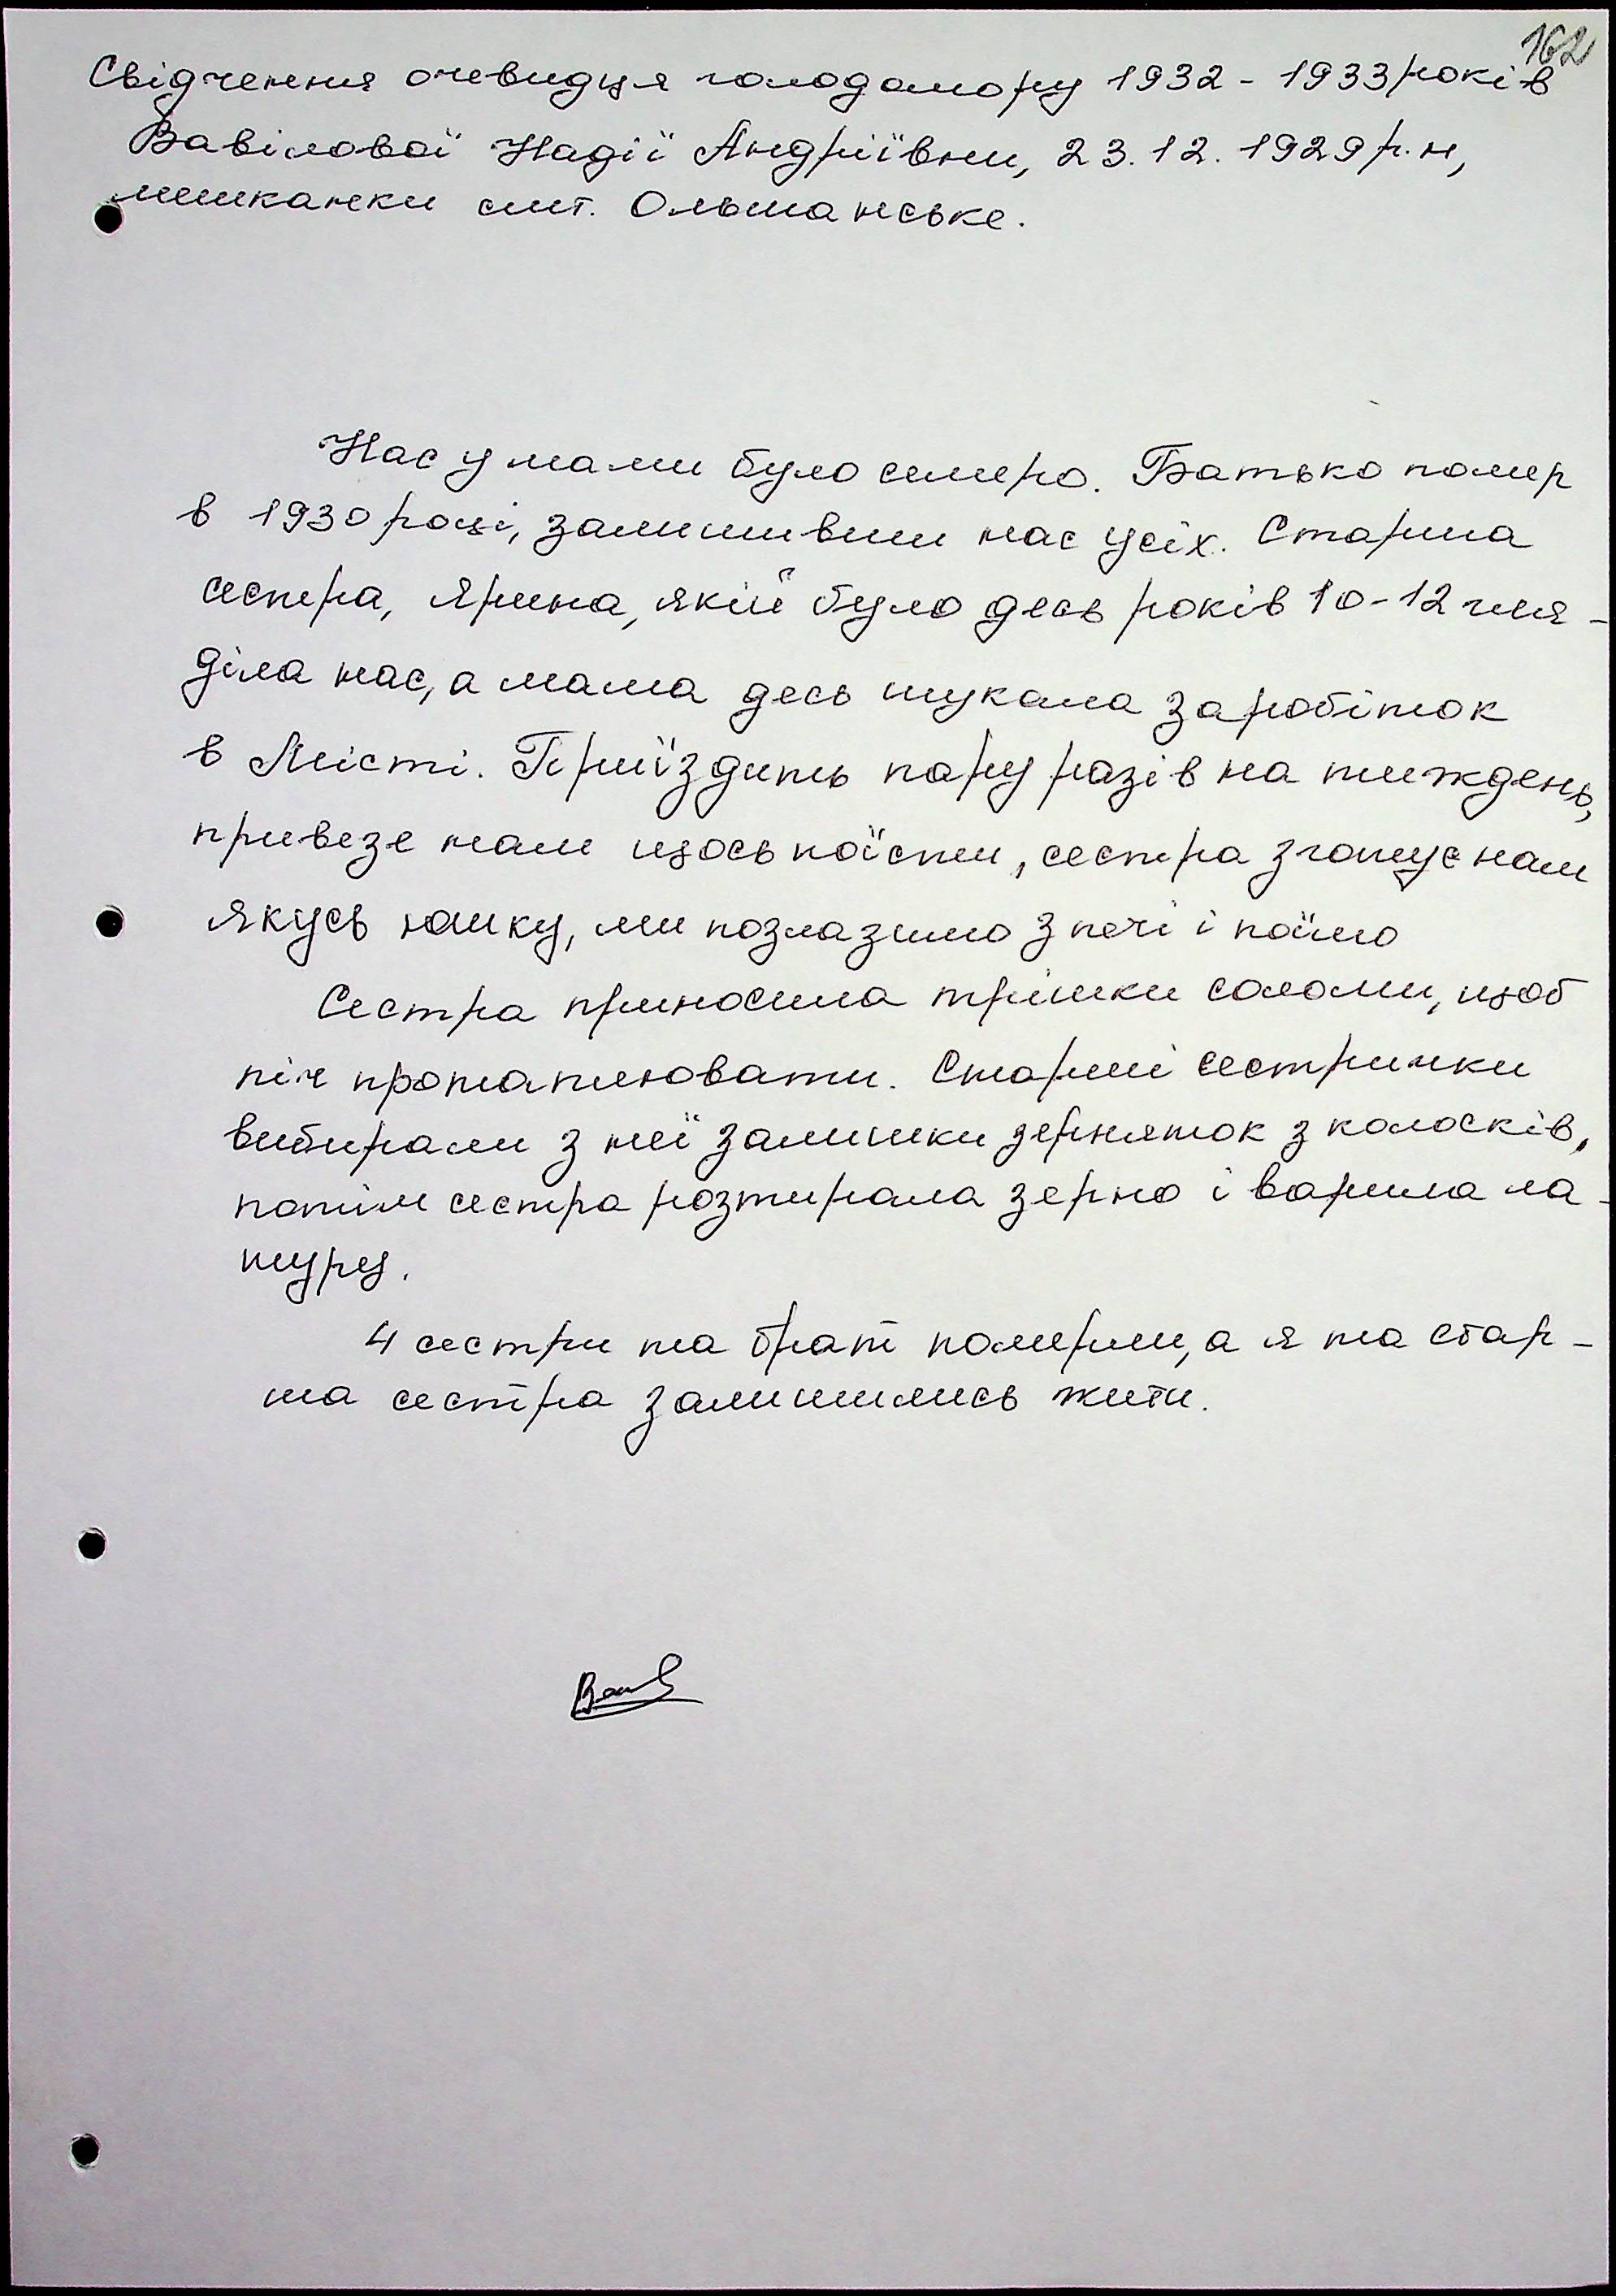 162
Свідчення очевидця голодомору 1932 - 1933 років
Вавілової Надії Андріївни, 23.12.1929 р.н,
мешканки смт. Ольшанське.
Нас у мами було семеро. Батько помер
в 1930 році, залишивши нас усіх. Старша
сестра, Ярина, якій було десь років 10-12 гля-
діла нас, а мама десь шукала заробіток
в Місті. Приїздить пару разів на тиждень,
привезе нам щось поїсти, сестра зготує нам
якусь юшку, ми позлазимо з печі і поїмо
Сестра приносила трішки соломи, щоб
піч протоплювати. Старші сестрички
вибирали з неї залишки зерняток з колосків,
потім сестра розтирала зерно і варила ла-
туру.
4 сестри та брат померли, а я та стар-
ша сестра залишились жити.